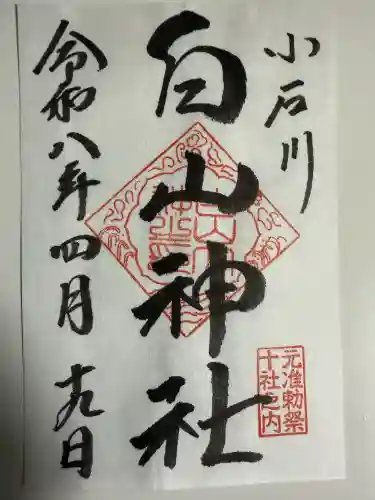 小石川
白山神社
元准勅祭
十社之内
令和八年四月十九日